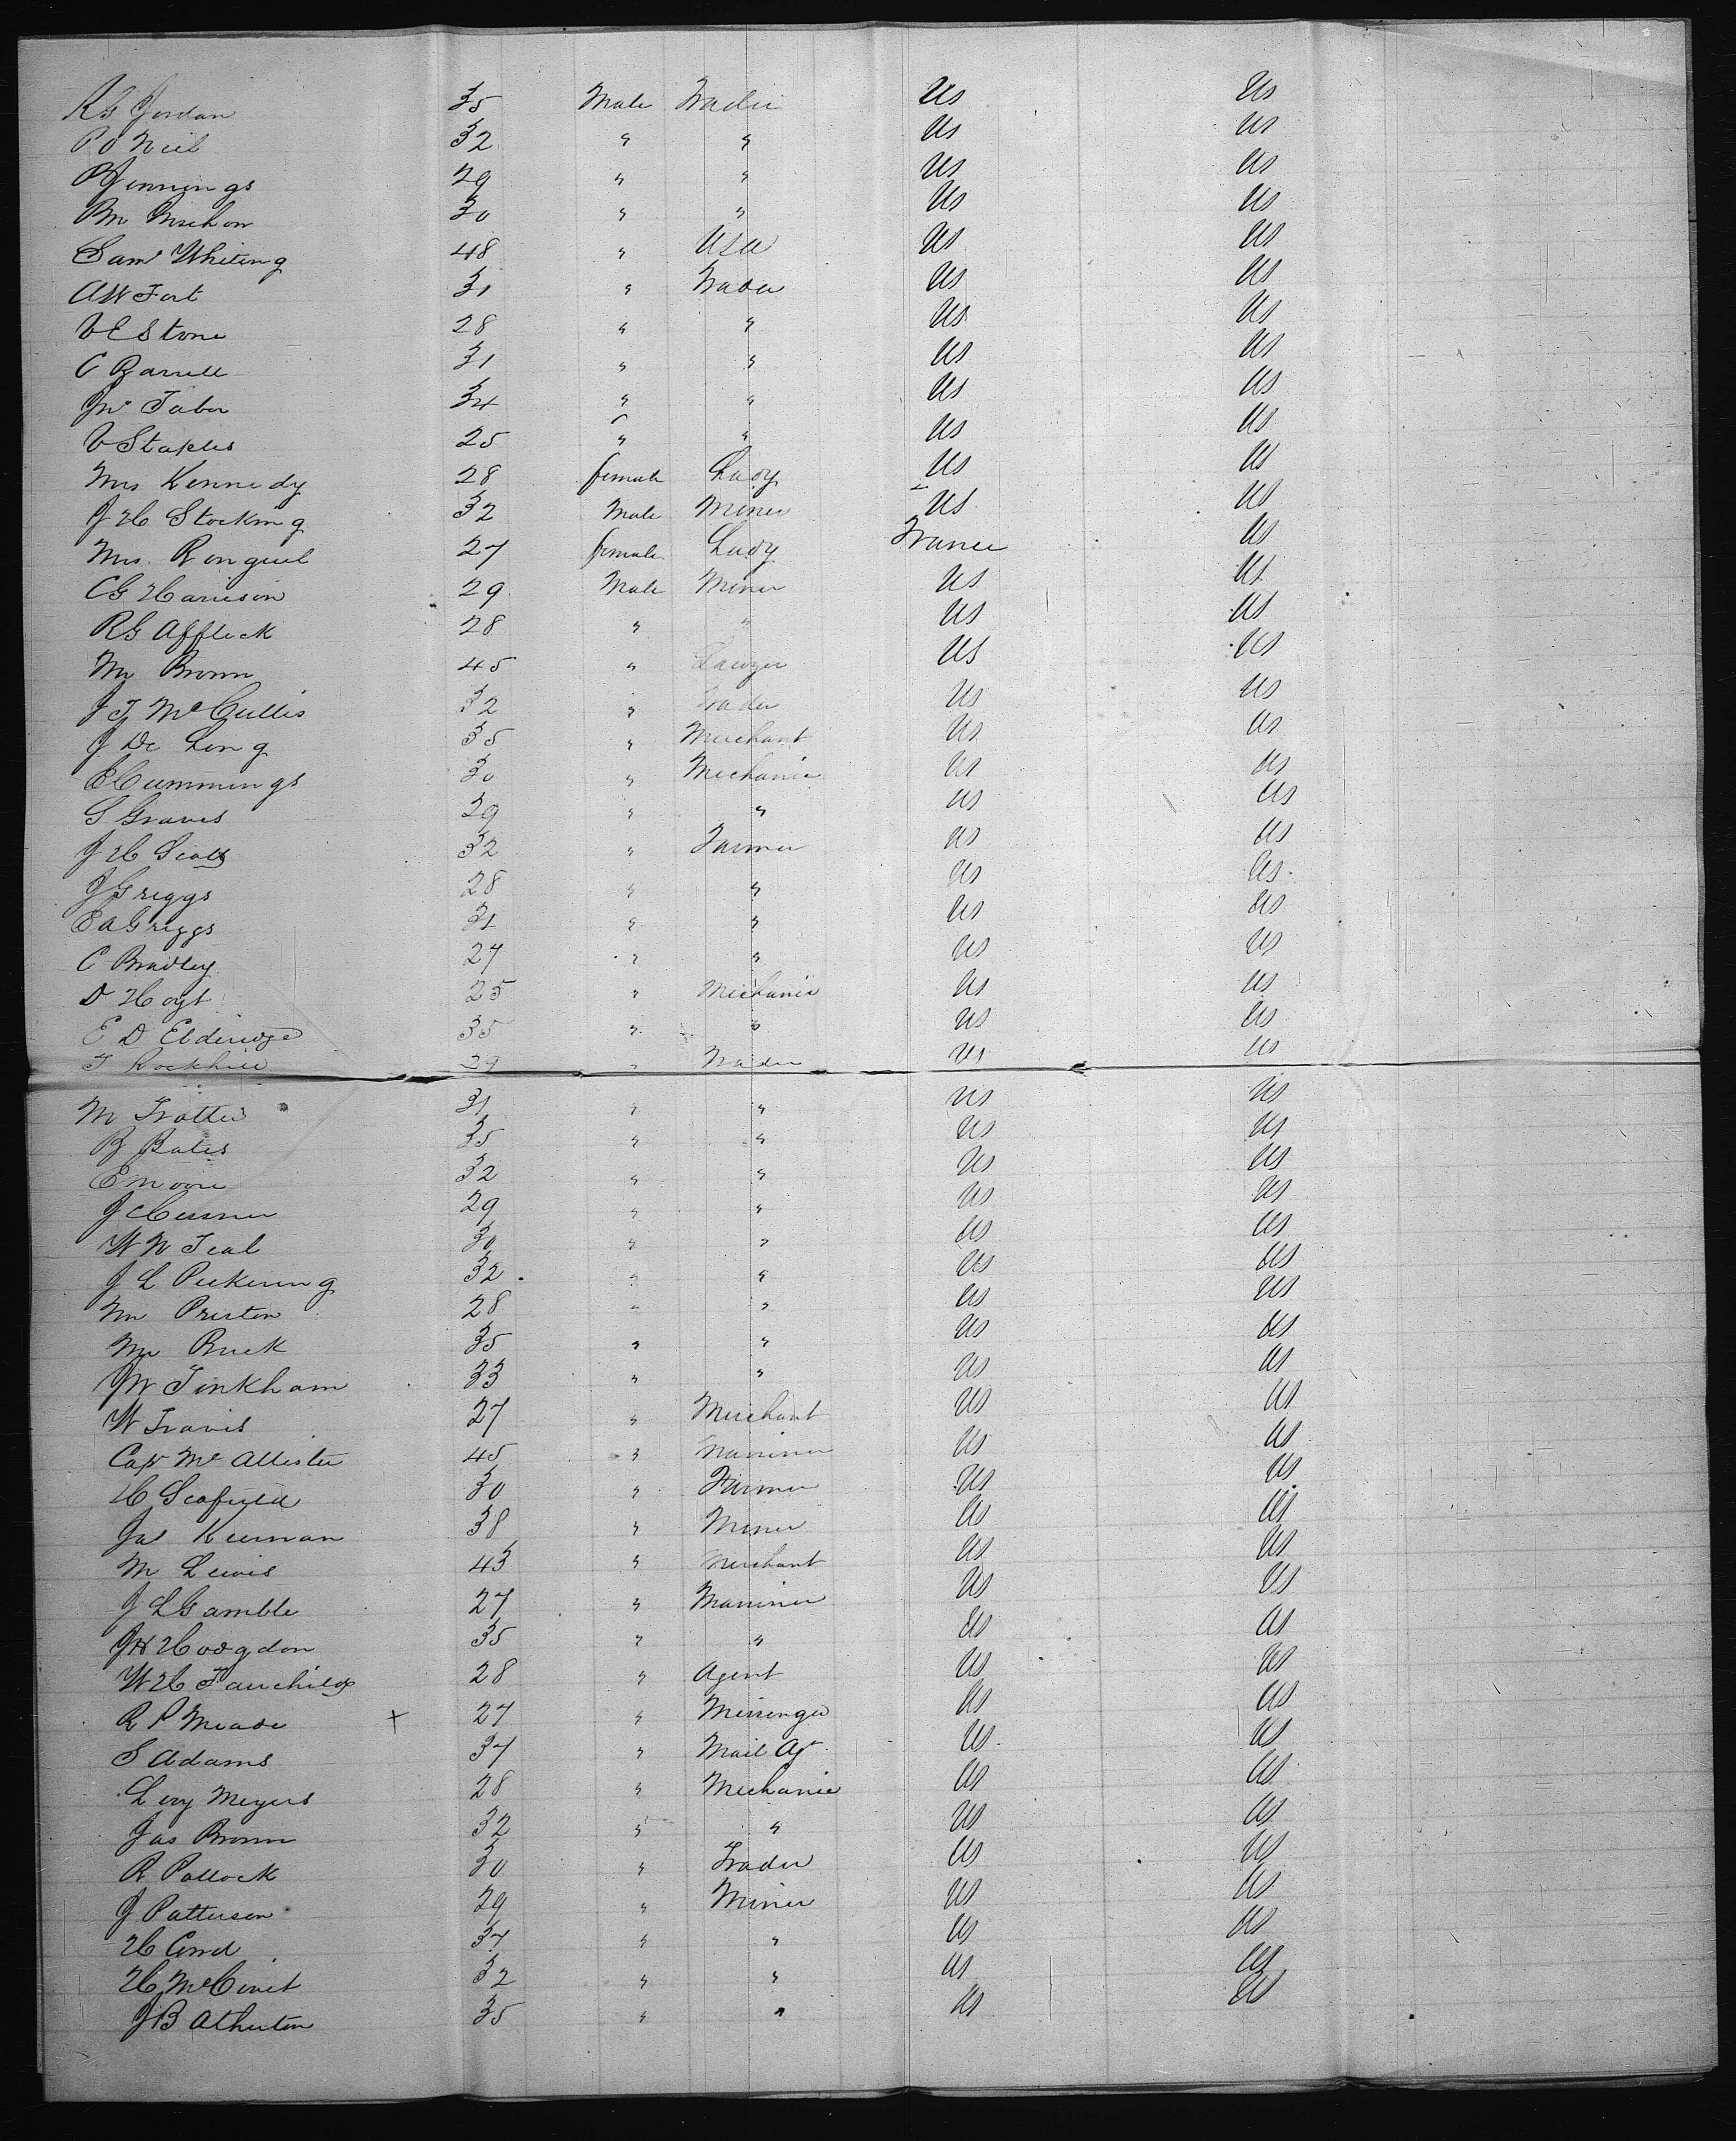 R G Jordan 35 Male Trader US US
P O Neil 32 " " US US
B Jennings 29 " " US US
30 " " US US
Saml Whiting 48 " USA US US
A W Fort 31 " Trader US US
V C Stone 28 " " US US
C Barrell 31 " " US US
Jno Taber 34 " " US US
V Staples 25 " " US US
Mrs Kennedy 28 female Lady US US
J H Stocking 32 Male Miner US US
Mrs. Ronguel 27 female Lady France US
C G Harrison 29 Male Miner US US
R G Affleck 28 " " US US
Mr Brown 45 " Lawyer US US
J T McCullis 32 " Trader US US
J De Long 35 " Merchant US US
E Cummings 30 " Mechanic US US
S Graves 29 " " US US
J H Scott 32 " Farmer US US
J Griggs 28 " " US US
E A Griggs 31 " " US US
C Bradley 27 " " US US
D Hoyt 25 " Mechanic US US
E D Elderidge 35 " " US US
T Rockhill 29 " Trader US US
M Trotter 31 " " US US
B Bates 35 " " US US
E Moore 32 " " US US
J 29 " " US US
W N Teal 30 " " US US
J L Pickering 32 " " US US
Mr Preston 28 " " US US
Mr Buck 35 " " US US
J W Tinkham 33 " " US US
W Travis 27 " Merchant US US
Capt McAllister 45 " Marriner US US
H Scofield 30 " Farmer US US
Jas Kiernan 38 " Miner US US
M Lewis 43 " Merchant US US
J L Gamble 27 " Marriner US US
J W Hodgdon 35 " " US US
W H Fairchild 28 " Agent US US
R P Meade + 27 " Messenger US US
S Adams 37 " Mail Agt US US
Levy Meyers 28 " Mechanic US US
Jas Brown 32 " " US US
R Pollock 30 " Trader US US
J Patterson 29 " Miner US US
H 37 " " US US
H 32 " " US US
J B Atherton 35 " " US US